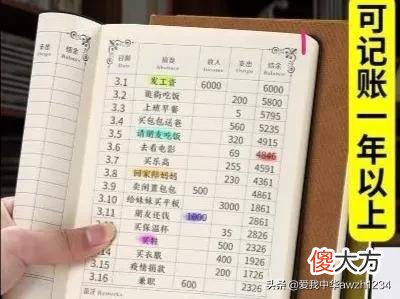 支出 结余
Outgo Balance
日期 摘要 收入 支出 结余
Date Abstract Income Outgo Balance
3.1 发工资 6000 6000
3.2 逛街吃饭 200 5800
3.3 上班早餐 5 5795
3.4 买包包送爸 560 5235
3.5 请朋友吃饭 320 4915
3.6 去看电影 69 4846
3.7 买乐高 255 4591
3.8 回家陪妈妈 230 4361
3.9 卖闲置包包 500 4861
3.10 给妹妹买平板 3000 1861
3.11 朋友还钱 1000 2861
买保温杯 35 2826
买鞋 500 2326
3.14 买衣服
3.15 疫情捐款
3.16 兼职 600 2326
备注 Remarks
可记账一年以上
傻大方
头条@爱我中华awzh1234